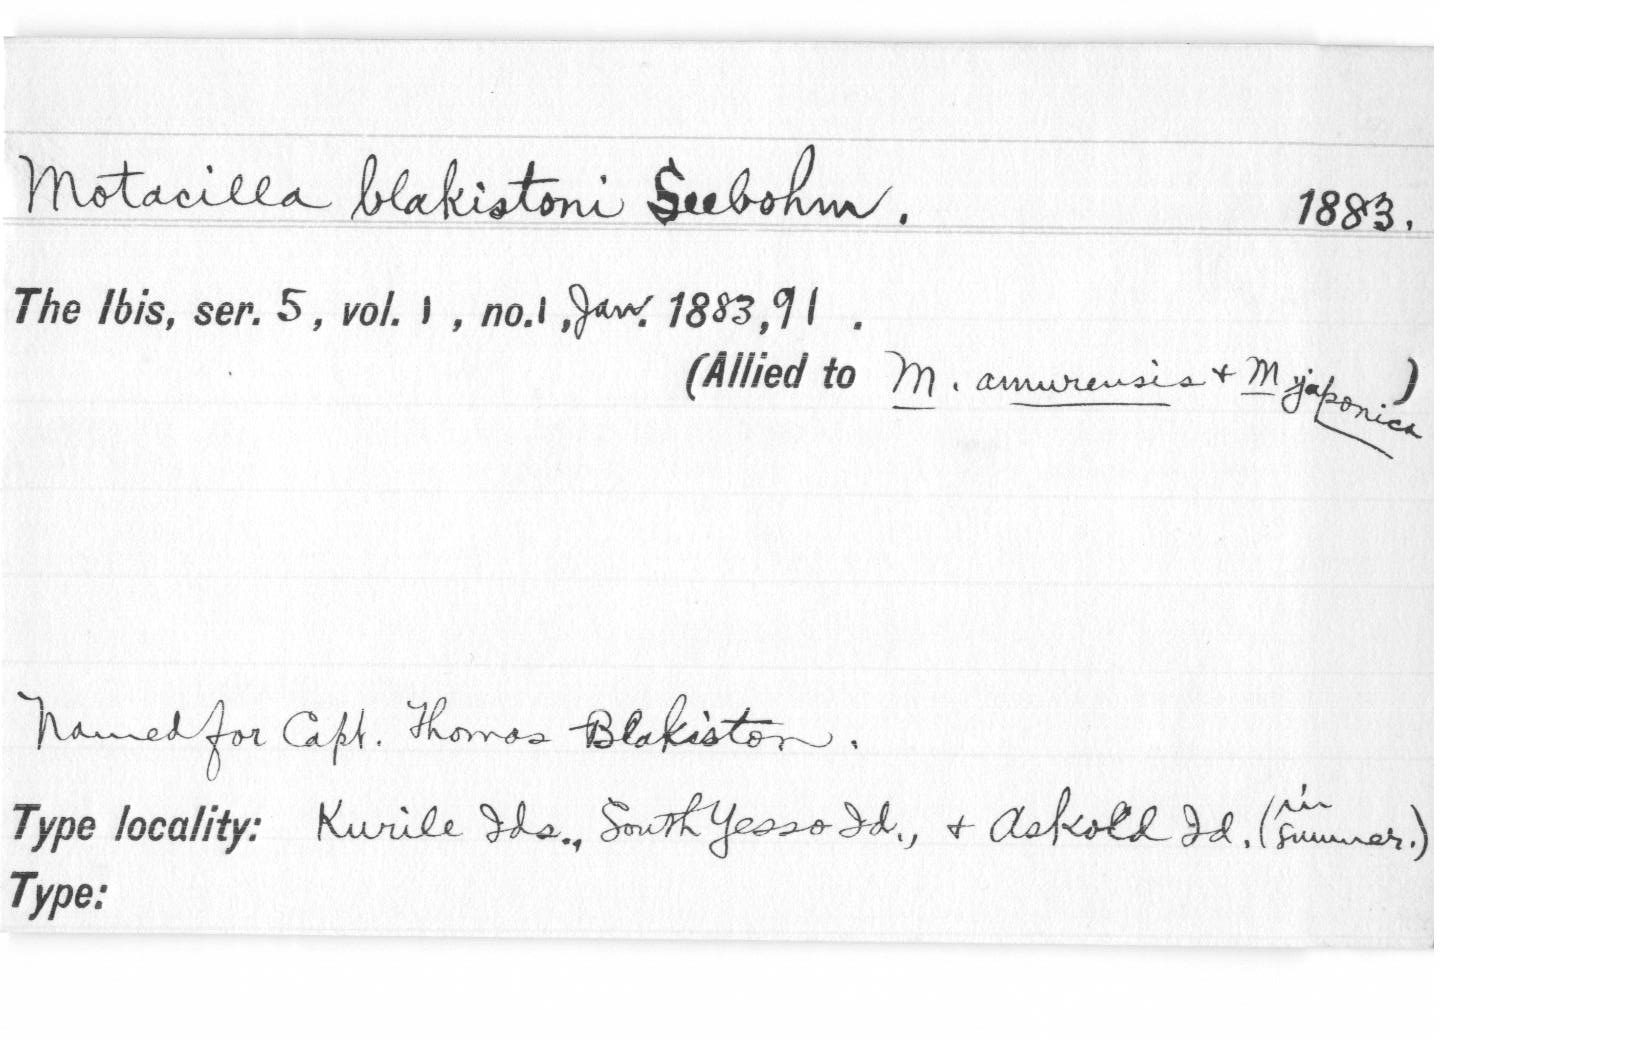 Motacilla blakistoni Seebohm. 1883.
The Ibis, ser. 5, vol. 1, no. 1, Jan. 1883, 91.
(Allied to M. amurensis + M japonica)
Named for Capt. Thomas Blakiston.
Type locality: Kurile Ids., South Yesso Id., + Askold Id. (in summer.)
Type: